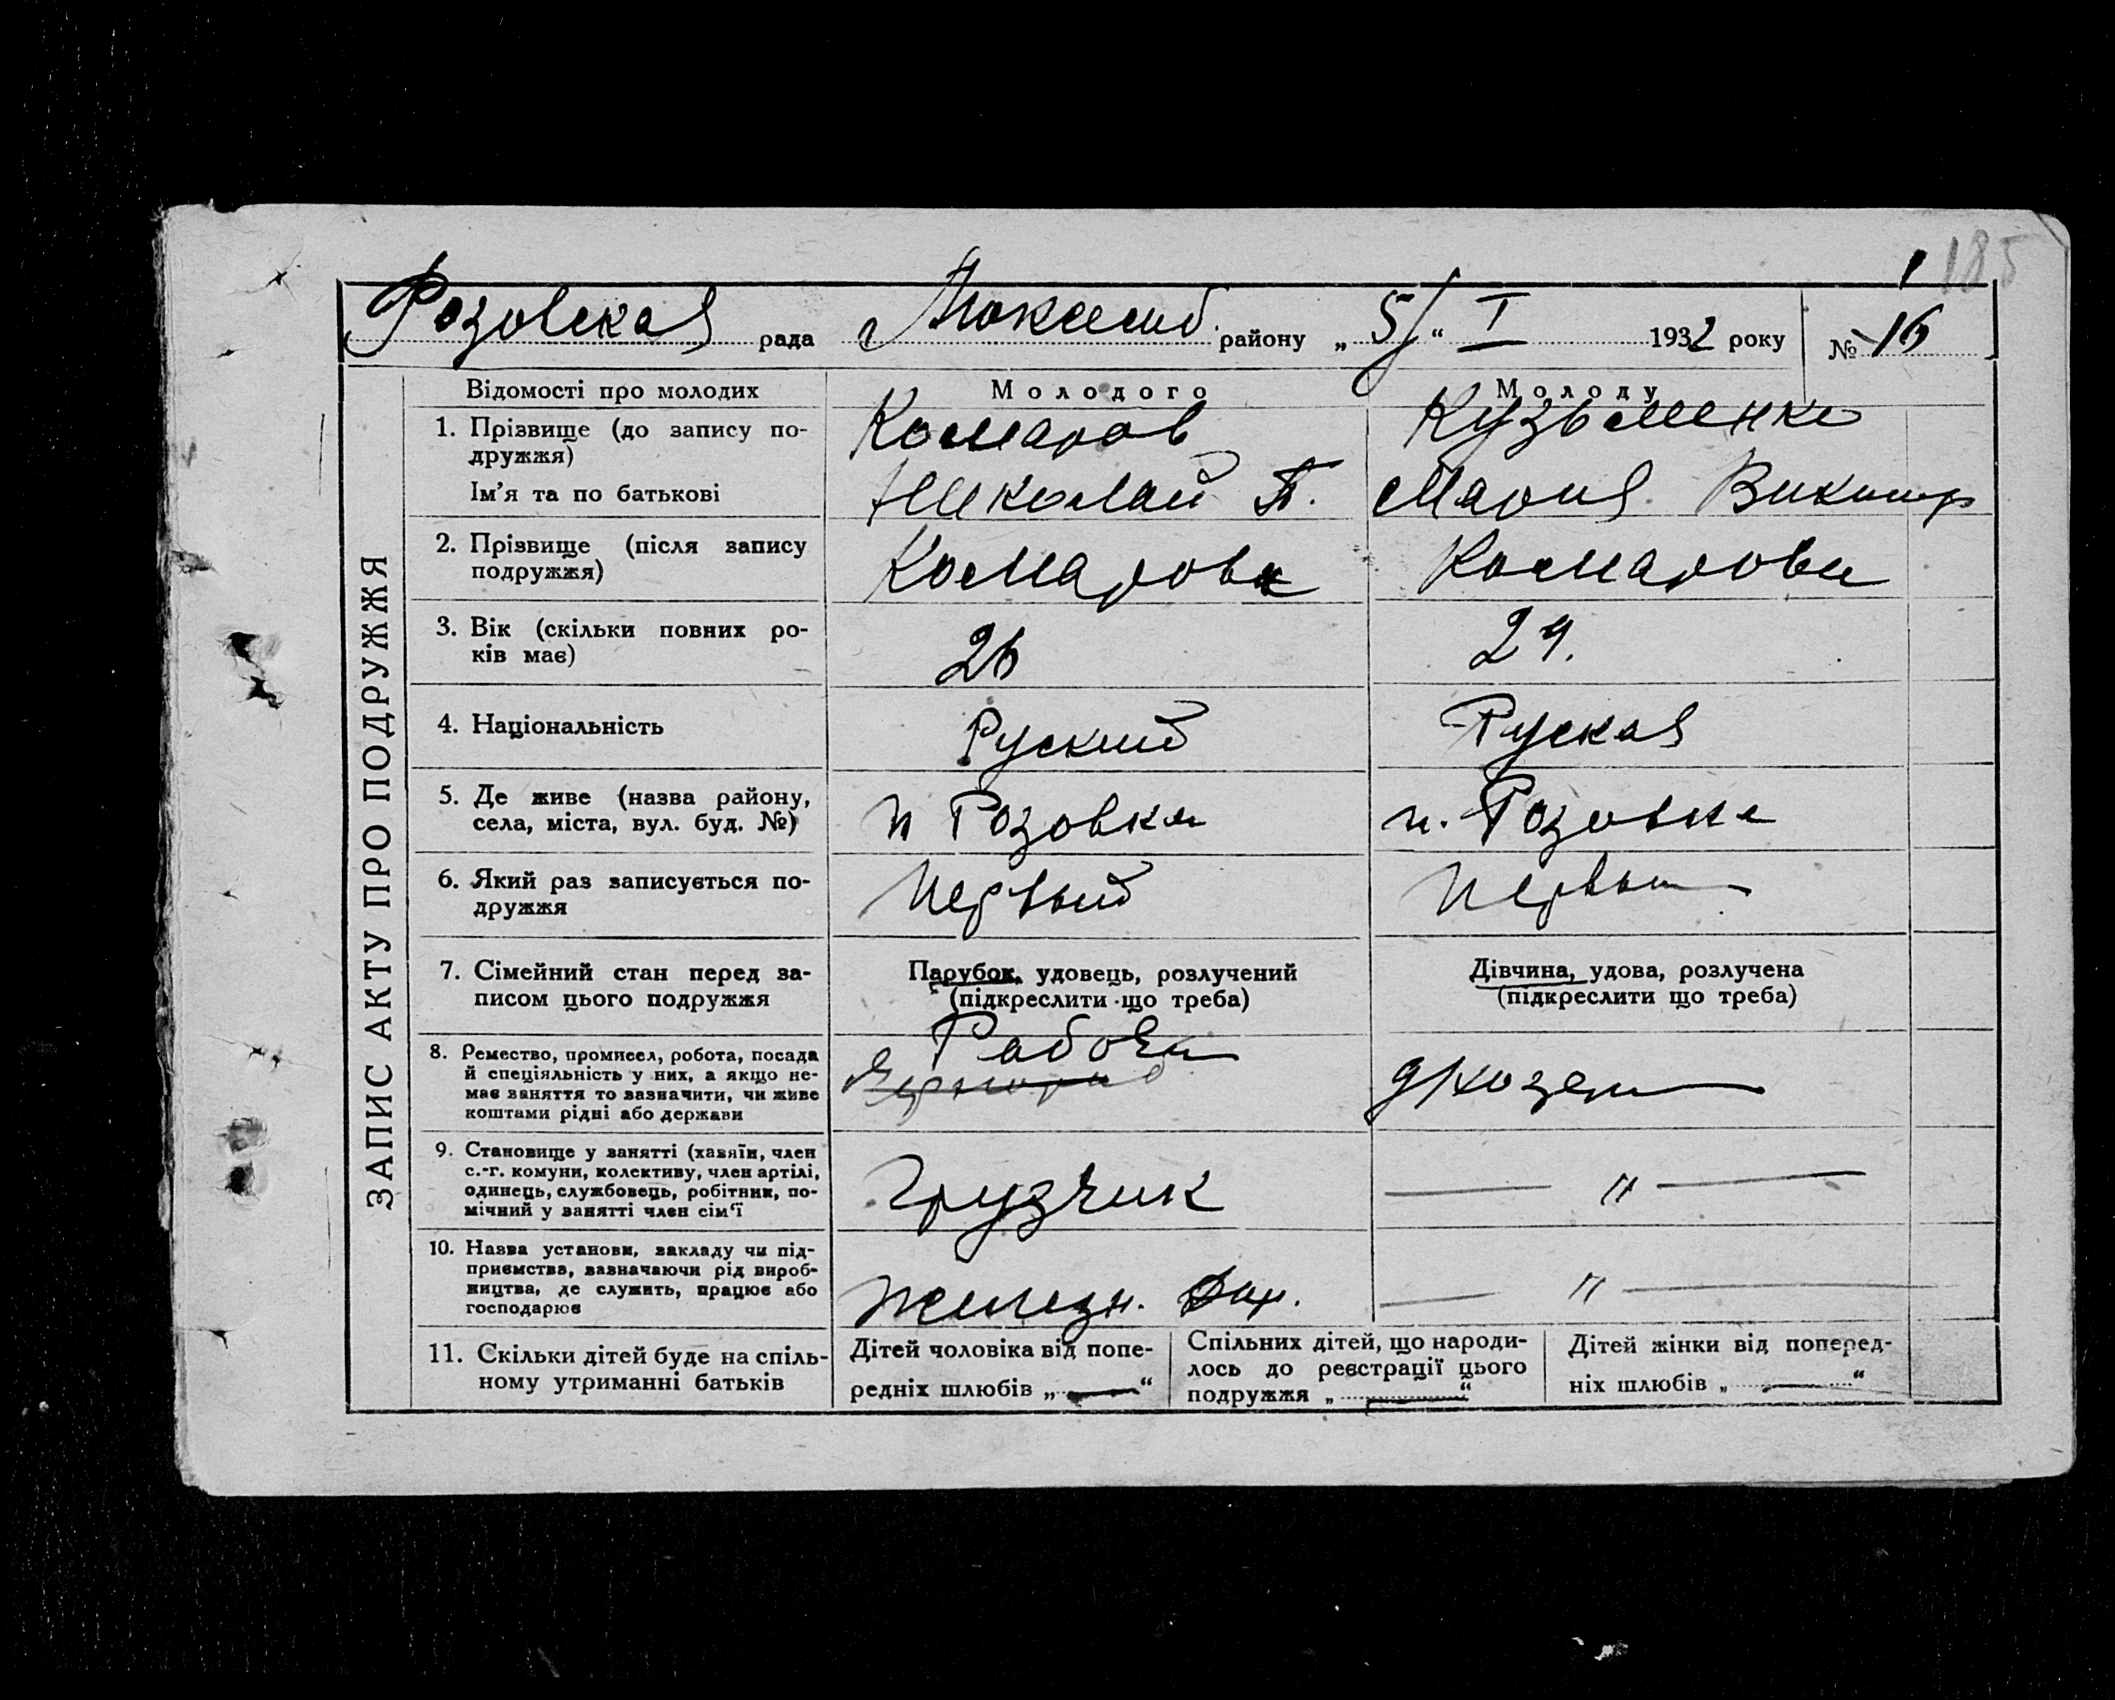 185
Розовская рада Люксемб. району „ 5/ “ I 1932 року № 16
ЗАПИС АКТУ ПРО ПОДРУЖЖЯ
Відомості про молодих
Молодого
Молоду
1. Прізвище (до запису по-
дружжя)
Комаров
Кузьменко
Ім'я та по батькові
Николай П.
Мария
2. Прізвище (після запису
подружжя)
Комарова
Комарова
3. Вік (скільки повних ро-
ків має)
26
24.
4. Національність
Руский
Руская
5. Де живе (назва району,
села, міста, вул. буд. №)
п Розовка
п. Розовка
6. Який раз записується по-
дружжя
Первый
Первы
7. Сімейний стан перед за-
писом цього подружжя
Парубок, удовець, розлучений
(підкреслити що треба)
Дівчина, удова, розлучена
(підкреслити що треба)
8. Ремество, промисел, робота, посада
й спеціяльність у них, а якщо не-
має заняття то зазначити, чи живе
коштами рідні або держави
Рабочи
дхозя
9. Становище у занятті (хазяїн, член
с.-г. комуни, колективу, член артілі,
одинець, службовець, робітник, по-
мічний у занятті член сім'ї
Грузчик
— " —
10. Назва установи, закладу чи під-
приємства, зазначаючи рід вироб-
ництва, де служить, працює або
господарює
Железн. Дор.
— " —
11. Скільки дітей буде на спіль-
ному утриманні батьків
Дітей чоловіка від попе-
редніх шлюбів „ — “
Спільних дітей, що народи-
лось до реєстрації цього
подружжя „ — “
Дітей жінки від поперед-
ніх шлюбів „ — “